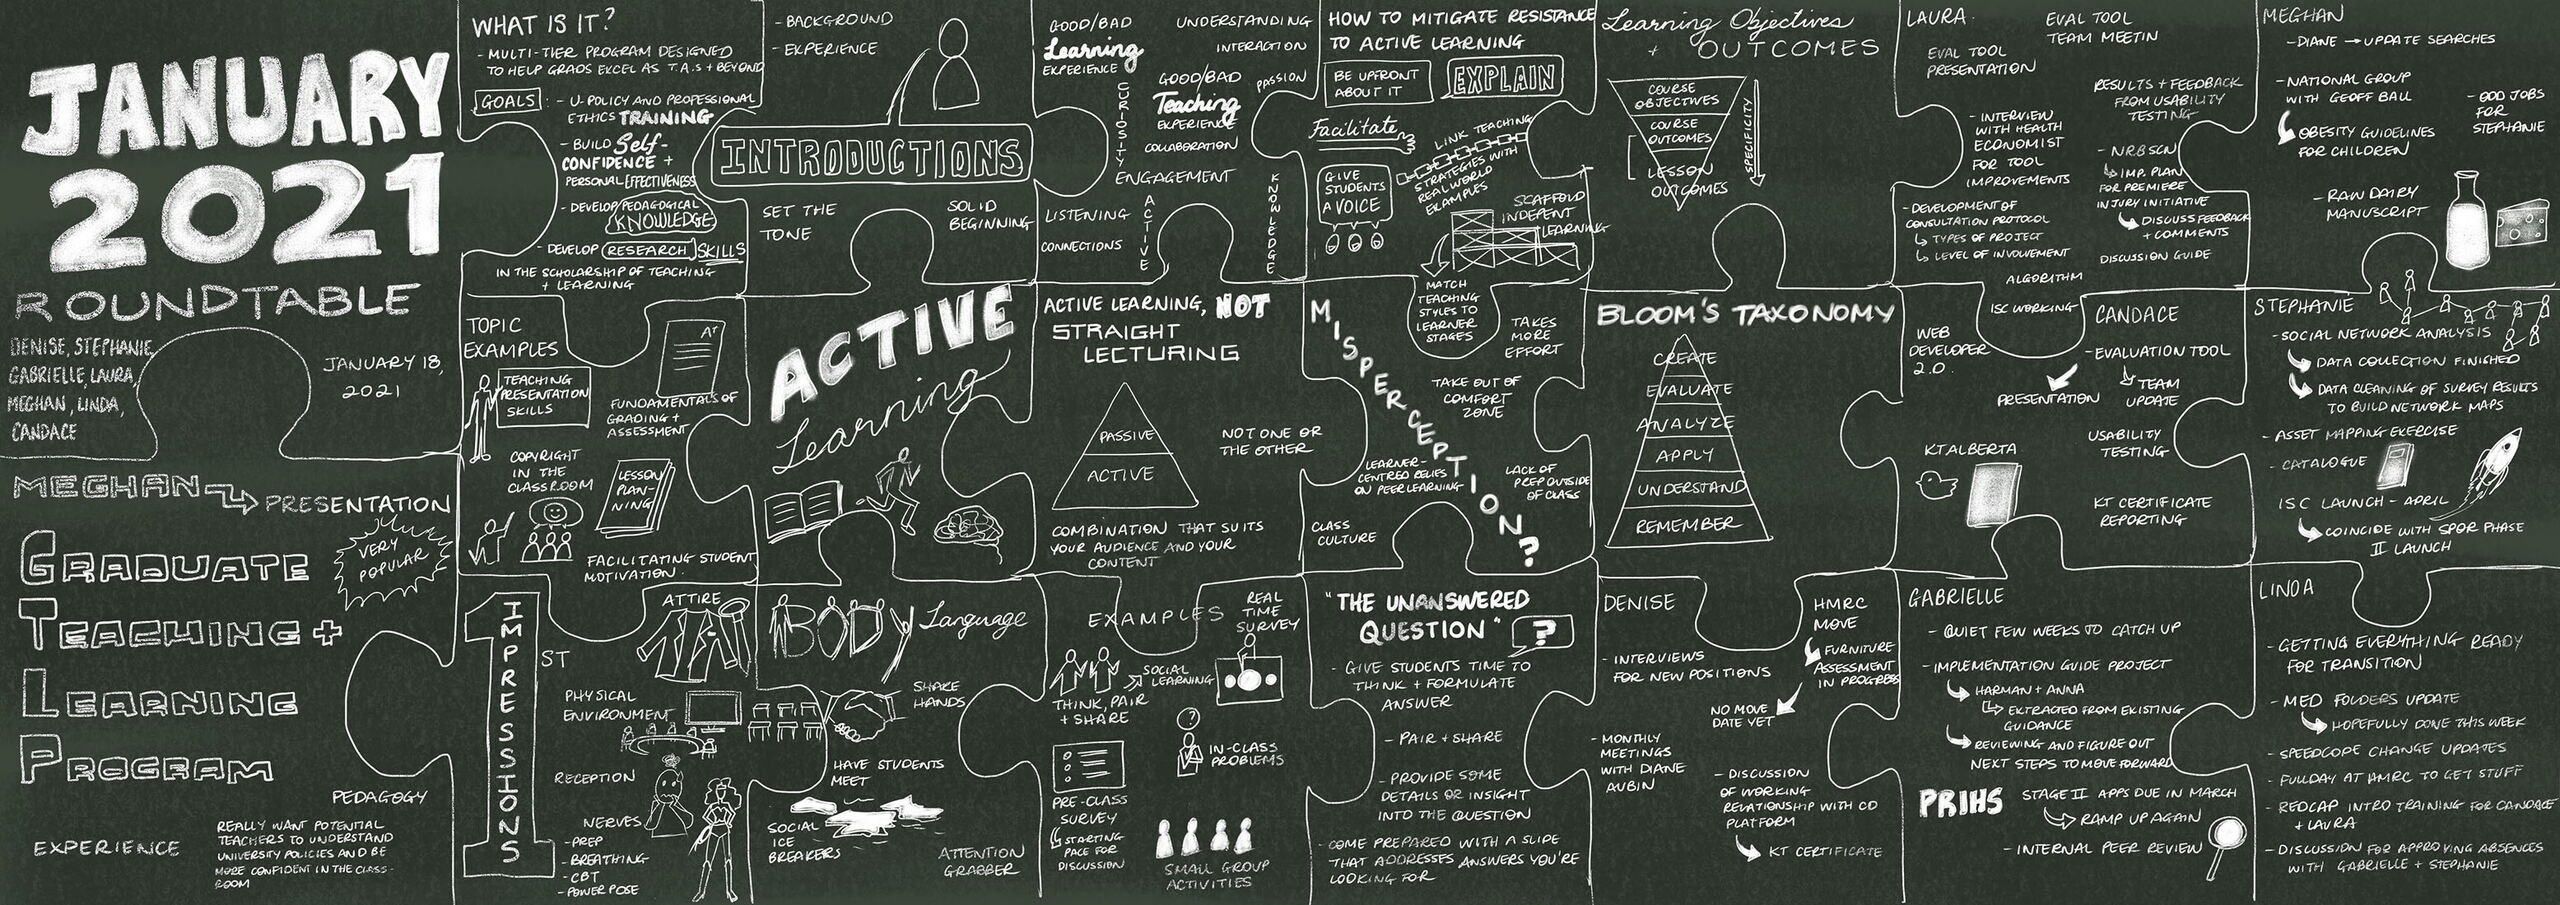 JANUARY
2021
ROUNDTABLE
DENISE, STEPHANIE,
GABRIELLE, LAURA,
MEGHAN, LINDA,
CANDACE
JANUARY 18,
2021
MEGHAN
PRESENTATION
VERY
POPULAR
GRADUATE
TEACHING +
LEARNING
PROGRAM
PEDAGOGY
EXPERIENCE
REALLY WANT POTENTIAL
TEACHERS TO UNDERSTAND
UNIVERSITY POLICIES AND BE
MORE CONFIDENT IN THE CLASS-
ROOM
WHAT IS IT?
- MULTI-TIER PROGRAM DESIGNED
TO HELP GRADS EXCEL AS T.A.S + BEYOND
GOALS:
- U-POLICY AND PROFESSIONAL
ETHICS TRAINING
- BUILD Self-
CONFIDENCE +
PERSONAL EFFECTIVENESS
- DEVELOP PEDAGOGICAL
KNOWLEDGE
- DEVELOP RESEARCH SKILLS
IN THE SCHOLARSHIP OF TEACHING
+ LEARNING
TOPIC
EXAMPLES
TEACHING
PRESENTATION
SKILLS
A+
FUNDAMENTALS OF
GRADING +
ASSESSMENT
COPYRIGHT
IN THE
CLASSROOM
LESSON
PLAN-
NING
FACILITATING STUDENT
MOTIVATION
1ST
IMPRESSIONS
ATTIRE
PHYSICAL
ENVIRONMENT
RECEPTION
NERVES
- PREP
- BREATHING
- CBT
- POWER POSE
- BACKGROUND
- EXPERIENCE
INTRODUCTIONS
SET THE
TONE
SOLID
BEGINNING
ACTIVE
Learning
BODY Language
SHAKE
HANDS
HAVE STUDENTS
MEET
SOCIAL
ICE
BREAKERS
ATTENTION
GRABBER
GOOD/BAD
Learning
EXPERIENCE
UNDERSTANDING
INTERACTION
GOOD/BAD
Teaching
EXPERIENCE
PASSION
CURIOSITY
COLLABORATION
ENGAGEMENT
LISTENING
CONNECTIONS
ACTIVE
KNOWLEDGE
ACTIVE LEARNING, NOT
STRAIGHT
LECTURING
PASSIVE
ACTIVE
NOT ONE OR
THE OTHER
COMBINATION THAT SUITS
YOUR AUDIENCE AND YOUR
CONTENT
EXAMPLES
REAL
TIME
SURVEY
THINK, PAIR
+ SHARE
SOCIAL
LEARNING
IN-CLASS
PROBLEMS
PRE-CLASS
SURVEY
STARTING
PACE FOR
DISCUSSION
SMALL GROUP
ACTIVITIES
HOW TO MITIGATE RESISTANCE
TO ACTIVE LEARNING
BE UPFRONT
ABOUT IT
EXPLAIN
Facilitate
LINK TEACHING
STRATEGIES WITH
REAL WORLD
EXAMPLES
GIVE
STUDENTS
A VOICE
SCAFFOLD
INDEPENT
LEARNING
MATCH
TEACHING
STYLES TO
LEARNER
STAGES
MISPERCEPTION?
TAKES
MORE
EFFORT
TAKE OUT OF
COMFORT
ZONE
LEARNER-
CENTRED RELIES
ON PEER LEARNING
LACK OF
PREP OUTSIDE
OF CLASS
CLASS
CULTURE
"THE UNANSWERED
QUESTION"
?
- GIVE STUDENTS TIME TO
THINK + FORMULATE
ANSWER
- PAIR + SHARE
- PROVIDE SOME
DETAILS OR INSIGHT
INTO THE QUESTION
- COME PREPARED WITH A SLIDE
THAT ADDRESSES ANSWERS YOU'RE
LOOKING FOR
Learning Objectives
+ OUTCOMES
COURSE
OBJECTIVES
COURSE
OUTCOMES
LESSON
OUTCOMES
SPECIFICITY
BLOOM'S TAXONOMY
CREATE
EVALUATE
ANALYZE
APPLY
UNDERSTAND
REMEMBER
DENISE
- INTERVIEWS
FOR NEW POSITIONS
HMRC
MOVE
FURNITURE
ASSESSMENT
IN PROGRESS
NO MOVE
DATE YET
- MONTHLY
MEETINGS
WITH DIANE
AUBIN
- DISCUSSION
OF WORKING
RELATIONSHIP WITH CD
PLATFORM
KT CERTIFICATE
LAURA
EVAL TOOL
PRESENTATION
EVAL TOOL
TEAM MEETIN
RESULTS + FEEDBACK
FROM USABILITY
TESTING
- INTERVIEW
WITH HEALTH
ECONOMIST
FOR TOOL
IMPROVEMENTS
- NRBSCN
IMP. PLAN
FOR PREMIERE
INJURY INITIATIVE
DISCUSS FEEDBACK
+ COMMENTS
- DEVELOPMENT OF
CONSULTATION PROTOCOL
TYPES OF PROJECT
LEVEL OF INVOLVEMENT
DISCUSSION GUIDE
ALGORITHM
ISC WORKING
WEB
DEVELOPER
2.0.
CANDACE
- EVALUATION TOOL
PRESENTATION
TEAM
UPDATE
USABILITY
TESTING
KTALBERTA
KT CERTIFICATE
REPORTING
GABRIELLE
- QUIET FEW WEEKS TO CATCH UP
- IMPLEMENTATION GUIDE PROJECT
HARMAN + ANNA
EXTRACTED FROM EXISTING
GUIDANCE
REVIEWING AND FIGURE OUT
NEXT STEPS TO MOVE FORWARD
PRIHS
STAGE II APPS DUE IN MARCH
RAMP UP AGAIN
- INTERNAL PEER REVIEW
MEGHAN
- DIANE → UPDATE SEARCHES
- NATIONAL GROUP
WITH GEOFF BALL
OBESITY GUIDELINES
FOR CHILDREN
- ODD JOBS
FOR
STEPHANIE
- RAW DAIRY
MANUSCRIPT
STEPHANIE
- SOCIAL NETWORK ANALYSIS
DATA COLLECTION FINISHED
DATA CLEANING OF SURVEY RESULTS
TO BUILD NETWORK MAPS
- ASSET MAPPING EXERCISE
- CATALOGUE
ISC LAUNCH - APRIL
COINCIDE WITH SPOR PHASE
II LAUNCH
LINDA
- GETTING EVERYTHING READY
FOR TRANSITION
- MED FOLDERS UPDATE
HOPEFULLY DONE THIS WEEK
- SPEEDCODE CHANGE UPDATES
- FULLDAY AT HMRC TO GET STUFF
- REDCAP INTRO TRAINING FOR CANDACE
+ LAURA
- DISCUSSION FOR APPROVING ABSENCES
WITH GABRIELLE + STEPHANIE